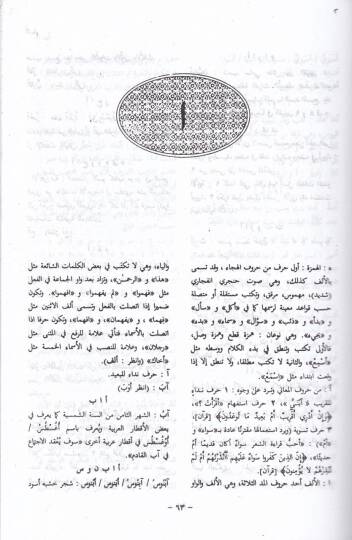 ا
ء : الهمزة : أولى حرف من حروف الهجاء، وقد تسمى
بالألف كذلك، وهي صوت حنجري انفجاري
(شديد)، مهموس، مرقق، وتكتب مستقلة أو متصلة
حسب قواعد معينة لرسمها كما في «أكل» و «سأل»
و «بدأ» و «ذئب» و «سؤال» و «سماء» و
«يجيء». وهي نوعان : همزة قطع وهمزة وصل،
فالأولى تكتب وتنطق في بدء الكلام ووسطه مثل
والثانية لا تكتب مطلقا، ولا تنطق إلا إذا
وقعت ابتداء مثل «اسْتَمَعَ».
أ : من حروف المعاني وترد على وجوه : ١ حرف نداء
للقريب ٢ حرف استفهام
﴿وَإِنْ أَدْرِي أَقَرِيبٌ أَمْ بَعِيدٌ مَا تُوعَدُونَ﴾ [قرآن].
٣ حرف تسوية (ورد استعمالها مقترنا عادة بـ«سواء» و
«أم») : «أحب قراءة الشعر سواء أكان قديما أم
حديثا»، ﴿إِنَّ الَّذِينَ كَفَرُوا سَوَاءٌ عَلَيْهِمْ أَأَنْذَرْتَهُمْ أَمْ لَمْ
تُنْذِرْهُمْ لَا يُؤْمِنُونَ﴾ [قرآن].
ا : الألف أحد حروف المد الثلاثة، وهي الألف والواو
والياء، وهي لا تكتب في بعض الكلمات الشائعة مثل
«هذا» و «الرحمن»، وتزاد بعد واو الجماعة في الفعل
مثل «فهموا» و «لم يفهموا» و «افهموا». وتكون
ضميرا إذا اتصلت بالفعل وتسمى ألف الاثنين مثل
«فهما» و «يفهمان» و «افهما»، وتكون حرفا إذا
اتصلت بالأسماء فتأتي علامة للرفع في المثنى مثل
«رجلان»، وعلامة للنصب في الأسماء الخمسة مثل
«أخاك» (انظر : ألف).
آ : حرف نداء للبعيد.
آبَ : (انظر أوب)
أ ا ب
آبُ : الشهر الثامن من السنة الشمسية كما يعرف في
بعض الأقطار العربية ويعرف باسم أغُسْطُسْ /
أوغُسْطُس في أقطار عربية أخرى «سوف يُعقد الاجتماع
في آب القادم».
أ ا ب ن و س
آبنوس / آبُنوس / أبَنُوس / أبْنُوس : شجر خشبه أسود
- ٦٣ -